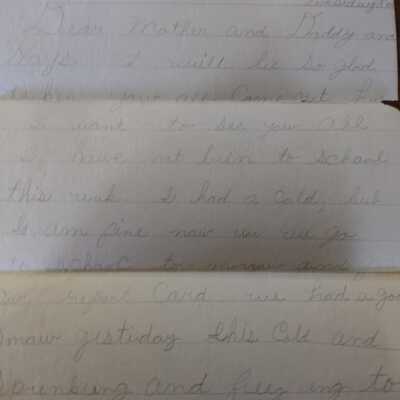 Tuesday
Dear Mother and Daddy and
Boys I will be so glad
when you all come out
I want to see you all
I have not been to school
this week I had a Cold, but
I am fine now we we go
to school to morrow and
our report Card we had a
snow yestiday this Cold and
and freez ing to